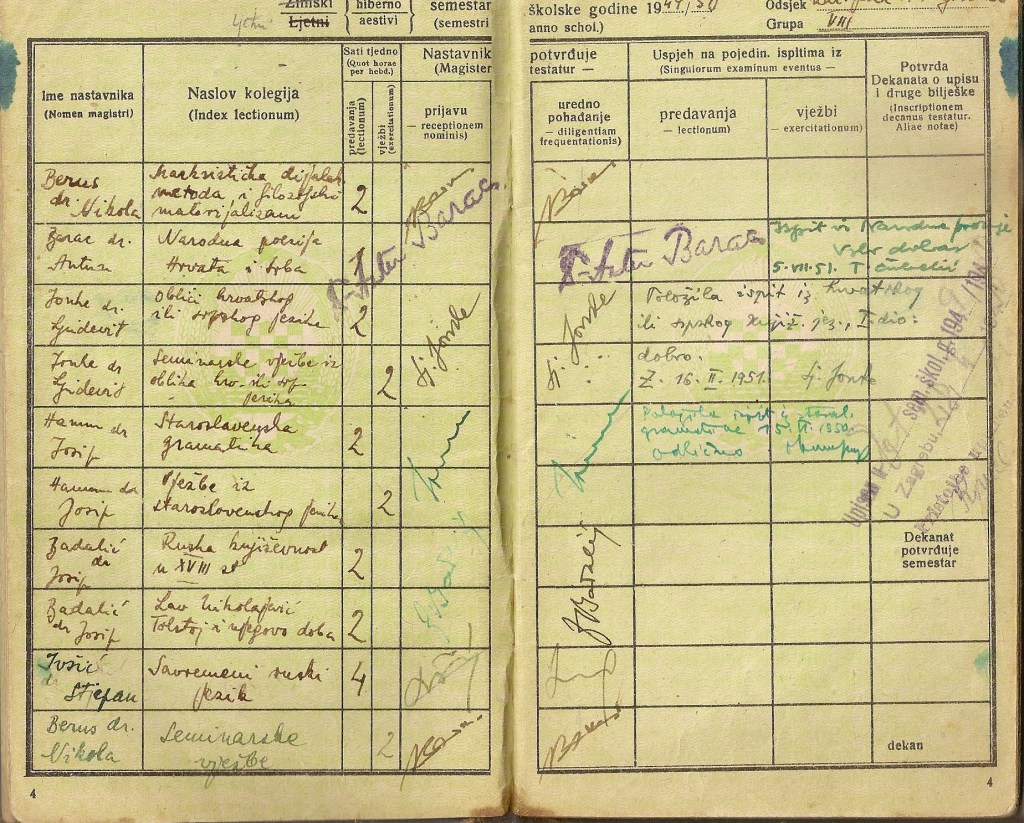 Zimski
Ljetni
hiberno
aestivi
semestar
(semestri
školske godine 1949/50
anno schol.)
Odsjek
Grupa VIII
Ime nastavnika
(Nomen magistri)
Naslov kolegija
(Index lectionum)
Sati tjedno
(Quot horae
per hebd.)
predavanja
(lectionum)
vježbi
(exercitationum)
Nastavnik
(Magister
prijavu
— receptionem
nominis)
potvrđuje
testatur —
uredno
pohađanje
— diligentiam
frequentationis)
Uspjeh na pojedin. ispitima iz
(Singulorum examinum eventus —
predavanja
— lectionum)
vježbi
— exercitationum)
Potvrda
Dekanata o upisu
i druge bilješke
(Inscriptionem
decanus testatur.
Aliae notae)
Berus
dr. Nikola
Marksistička dijalek
metoda i filozofski
materijalizam
2
Barac dr.
Antun
Narodna poezija
Hrvata i Srba
1
Dr. Antun Barac
Dr. Antun Barac
Ispit iz Narodne poezije
vrlo dobar
5. VII. 51.
Jonke dr.
Ljudevit
Oblici hrvatskog
ili srpskog jezika
2
Lj. Jonke
Lj. Jonke
Položila ispit iz hrvatskog
ili srpskog knjiž. jez., I. dio:
dobro.
Z. 16. II. 1951. Lj. Jonke
Jonke dr
Ljudevit
Seminarske vježbe iz
oblika hrv. ili srp.
jezika
2
Hamm dr
Josip
Staroslavenska
gramatika
2
Hamm
Hamm
Položila ispit iz staroslav.
gramatike 15. II. 1950.
odlično
Hamm dr
Josip
Vježbe iz
staroslovenskog jezika
2
Badalić
dr
Josip
Ruska književnost
u XVIII st
2
J. Badalić
J. Badalić
Badalić
dr Josip
Lav Nikolajević
Tolstoj i njegovo doba
2
Ivšić
dr
Stjepan
Savremeni ruski
jezik
4
Berus dr.
Nikola
Seminarske
vježbe
2
U Zagrebu
Dekanat
potvrđuje
semestar
dekan
4
4